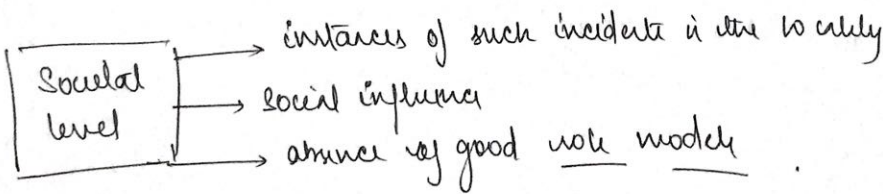 Societal level
instances of such incidents in the locality
social influence
absence of good role models.